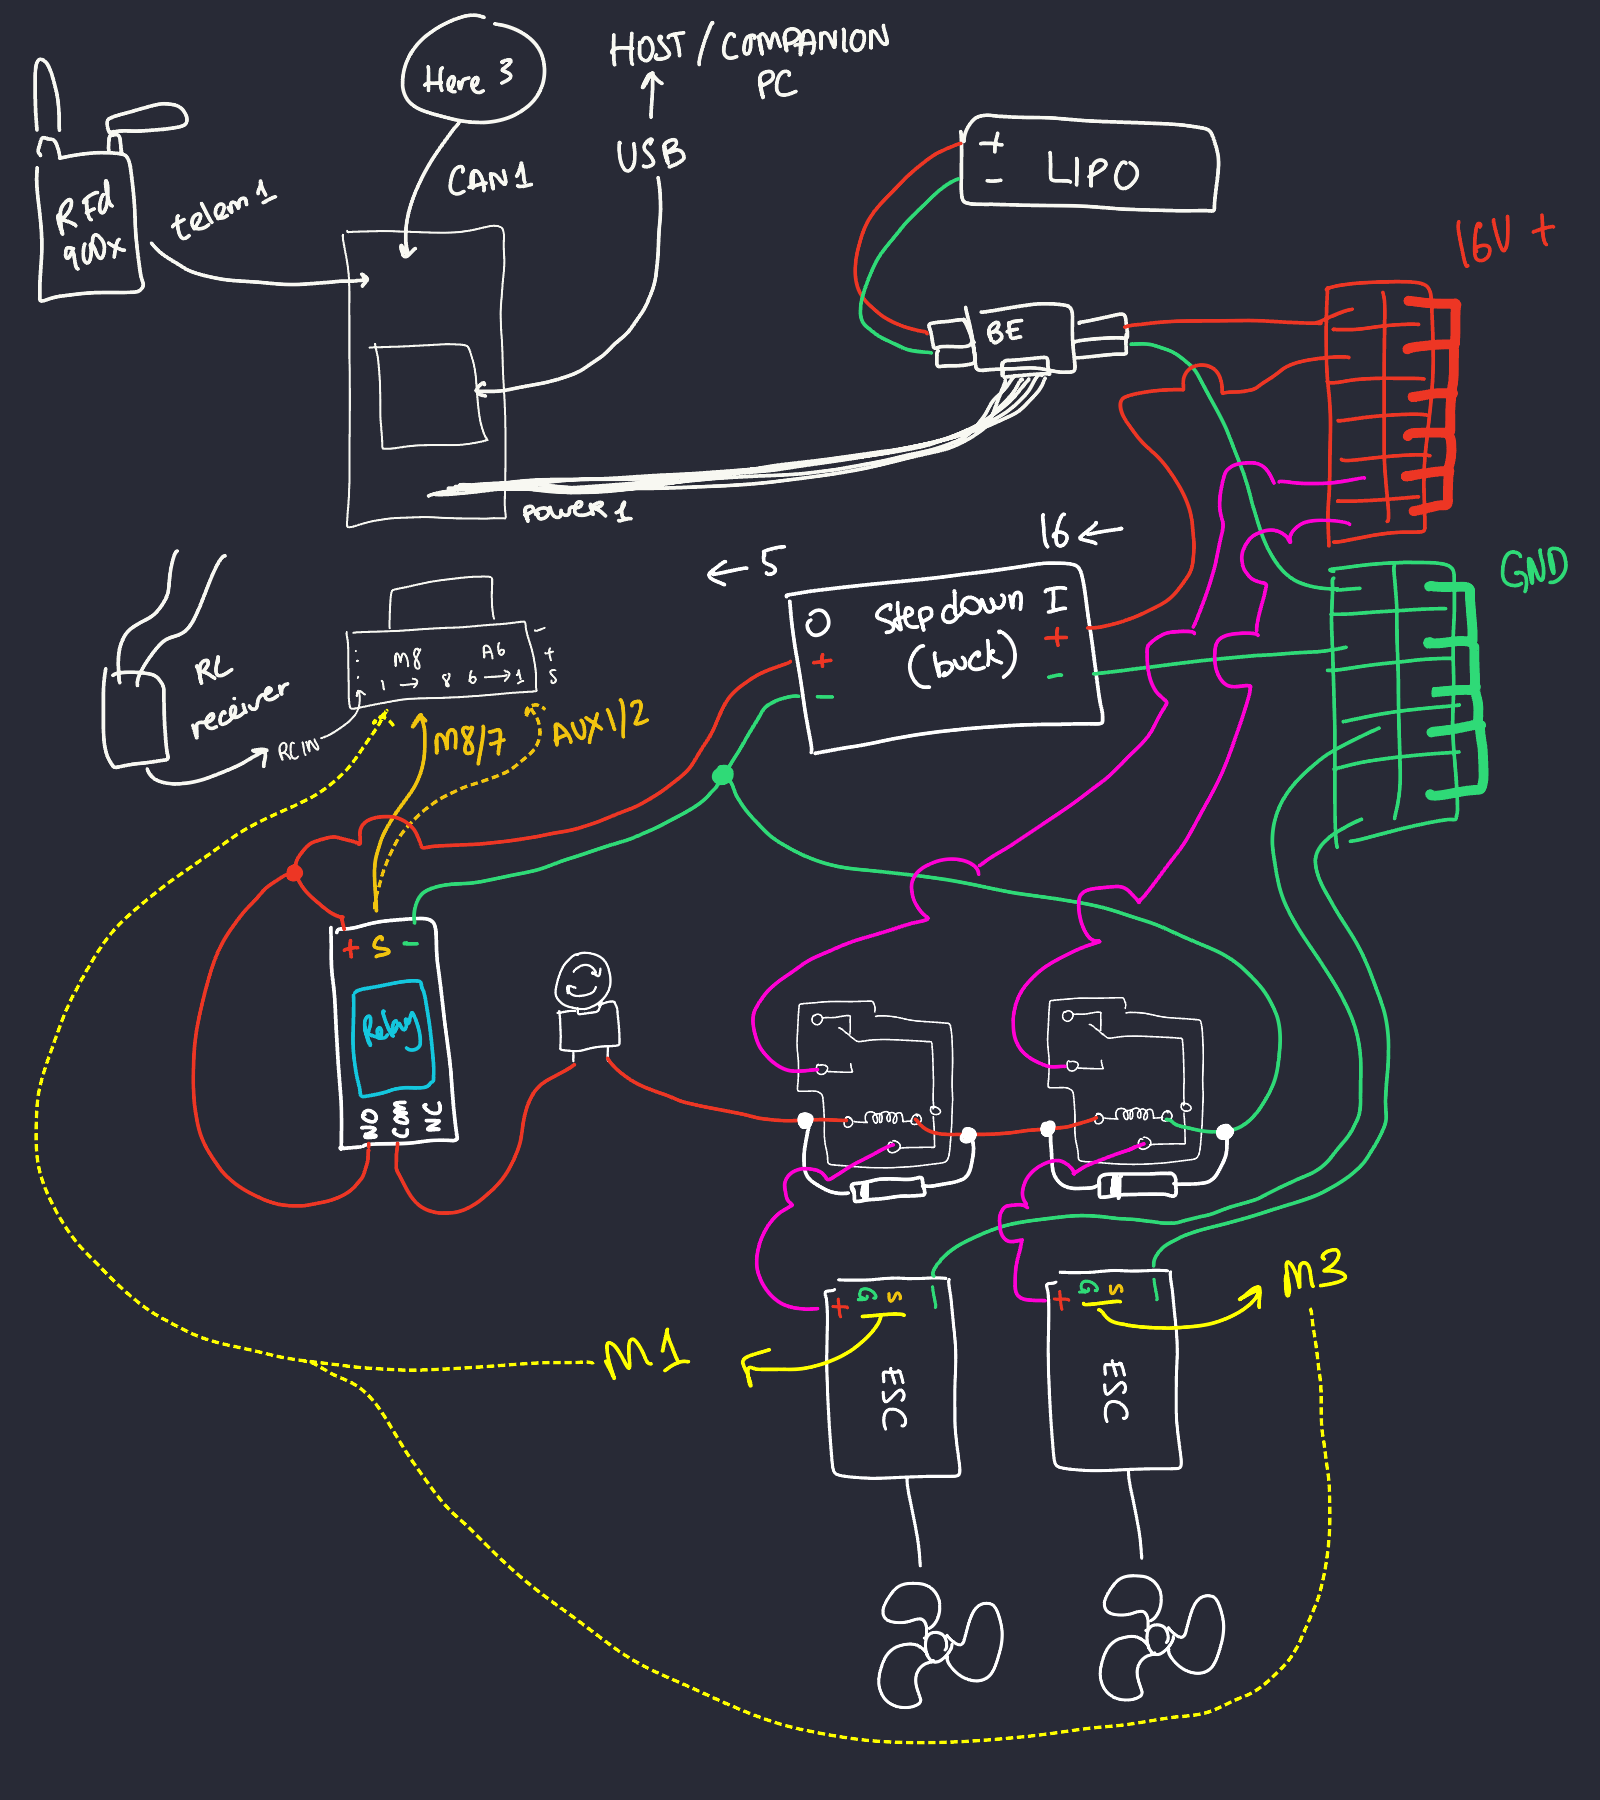 Here 3
HOST / COMPANION
PC
USB
CAN1
RFd
900x
telem1
+
-
LIPO
16V +
BE
POWER1
16 ←
← 5
GND
O
Step down
(buck)
I
+
-
+
-
RC
receiver
RC IN
M8
A6
1 → 8
6 → 1
-
+
S
M8/7
AUX1/2
+ S -
Relay
NO
COM
NC
M3
M1
+ G S -
ESC
+ G S -
ESC